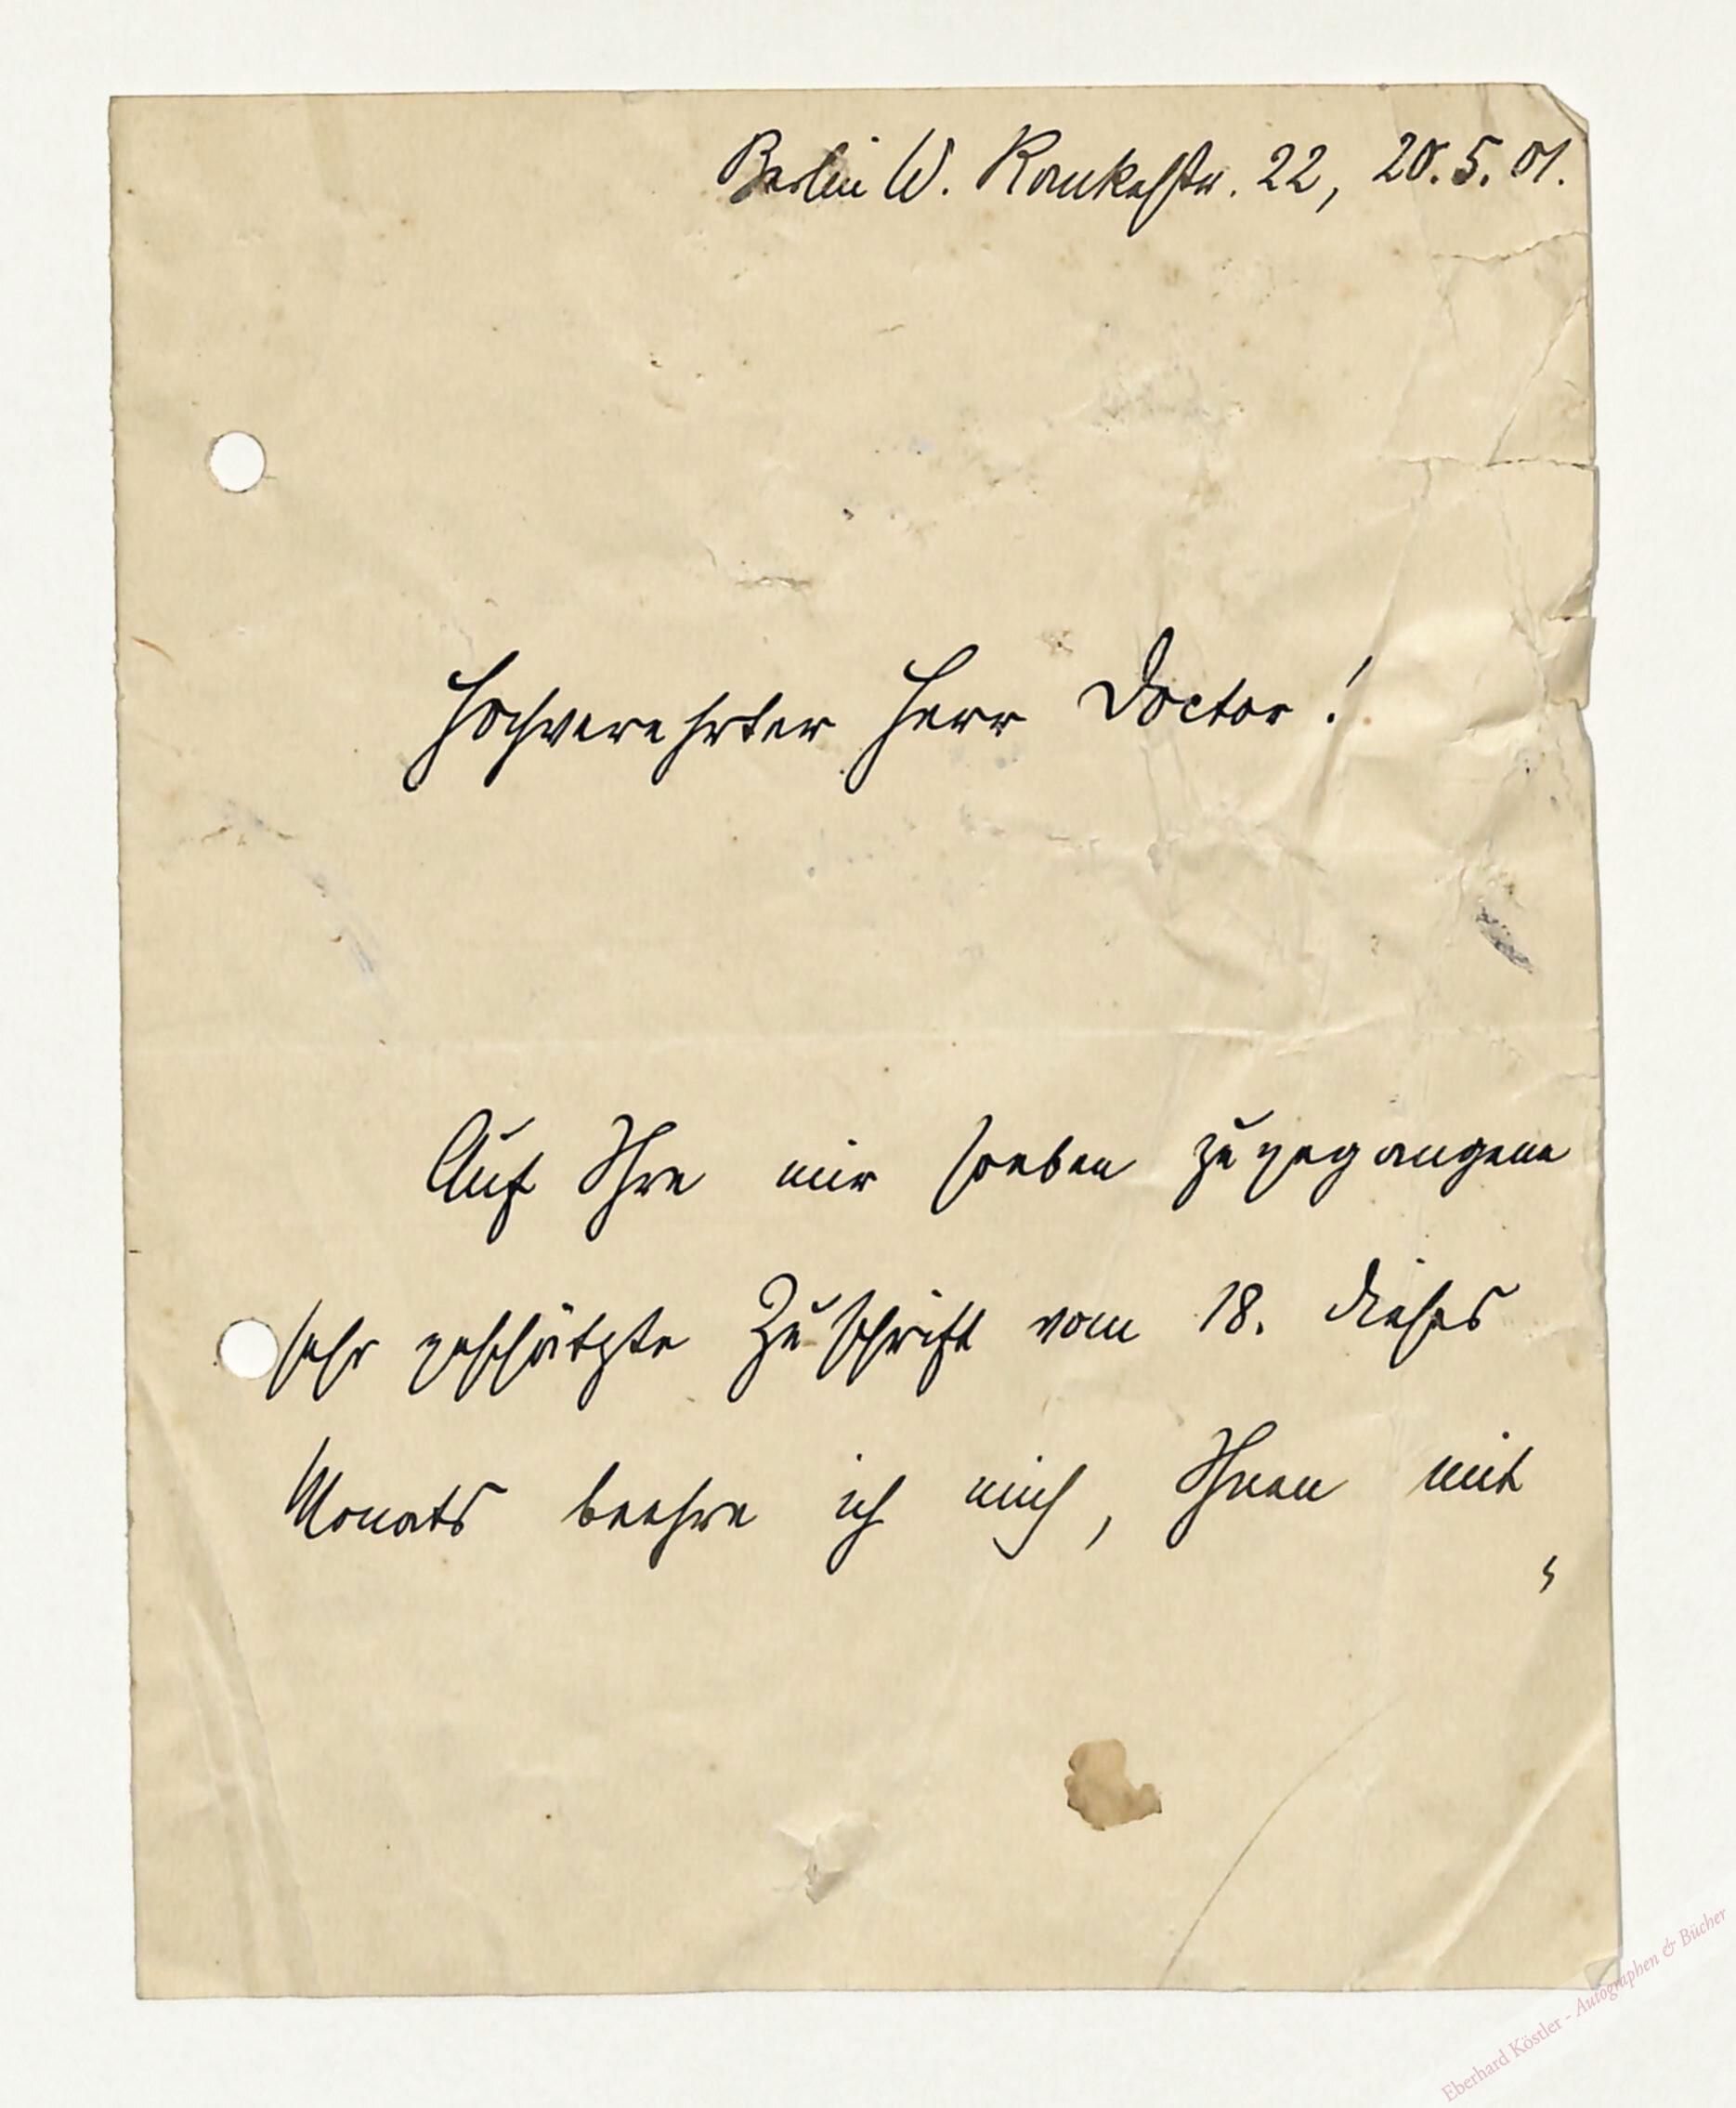 Berlin W. Rankestr. 22, 20.5.01.
Hochverehrter Herr Doctor!
Auf Ihre mir soeben zugegangene
sehr geschätzte Zuschrift vom 18. dieses
Monats beehre ich mich, Ihnen mit
Eberhard Köstler - Autographen & Bücher